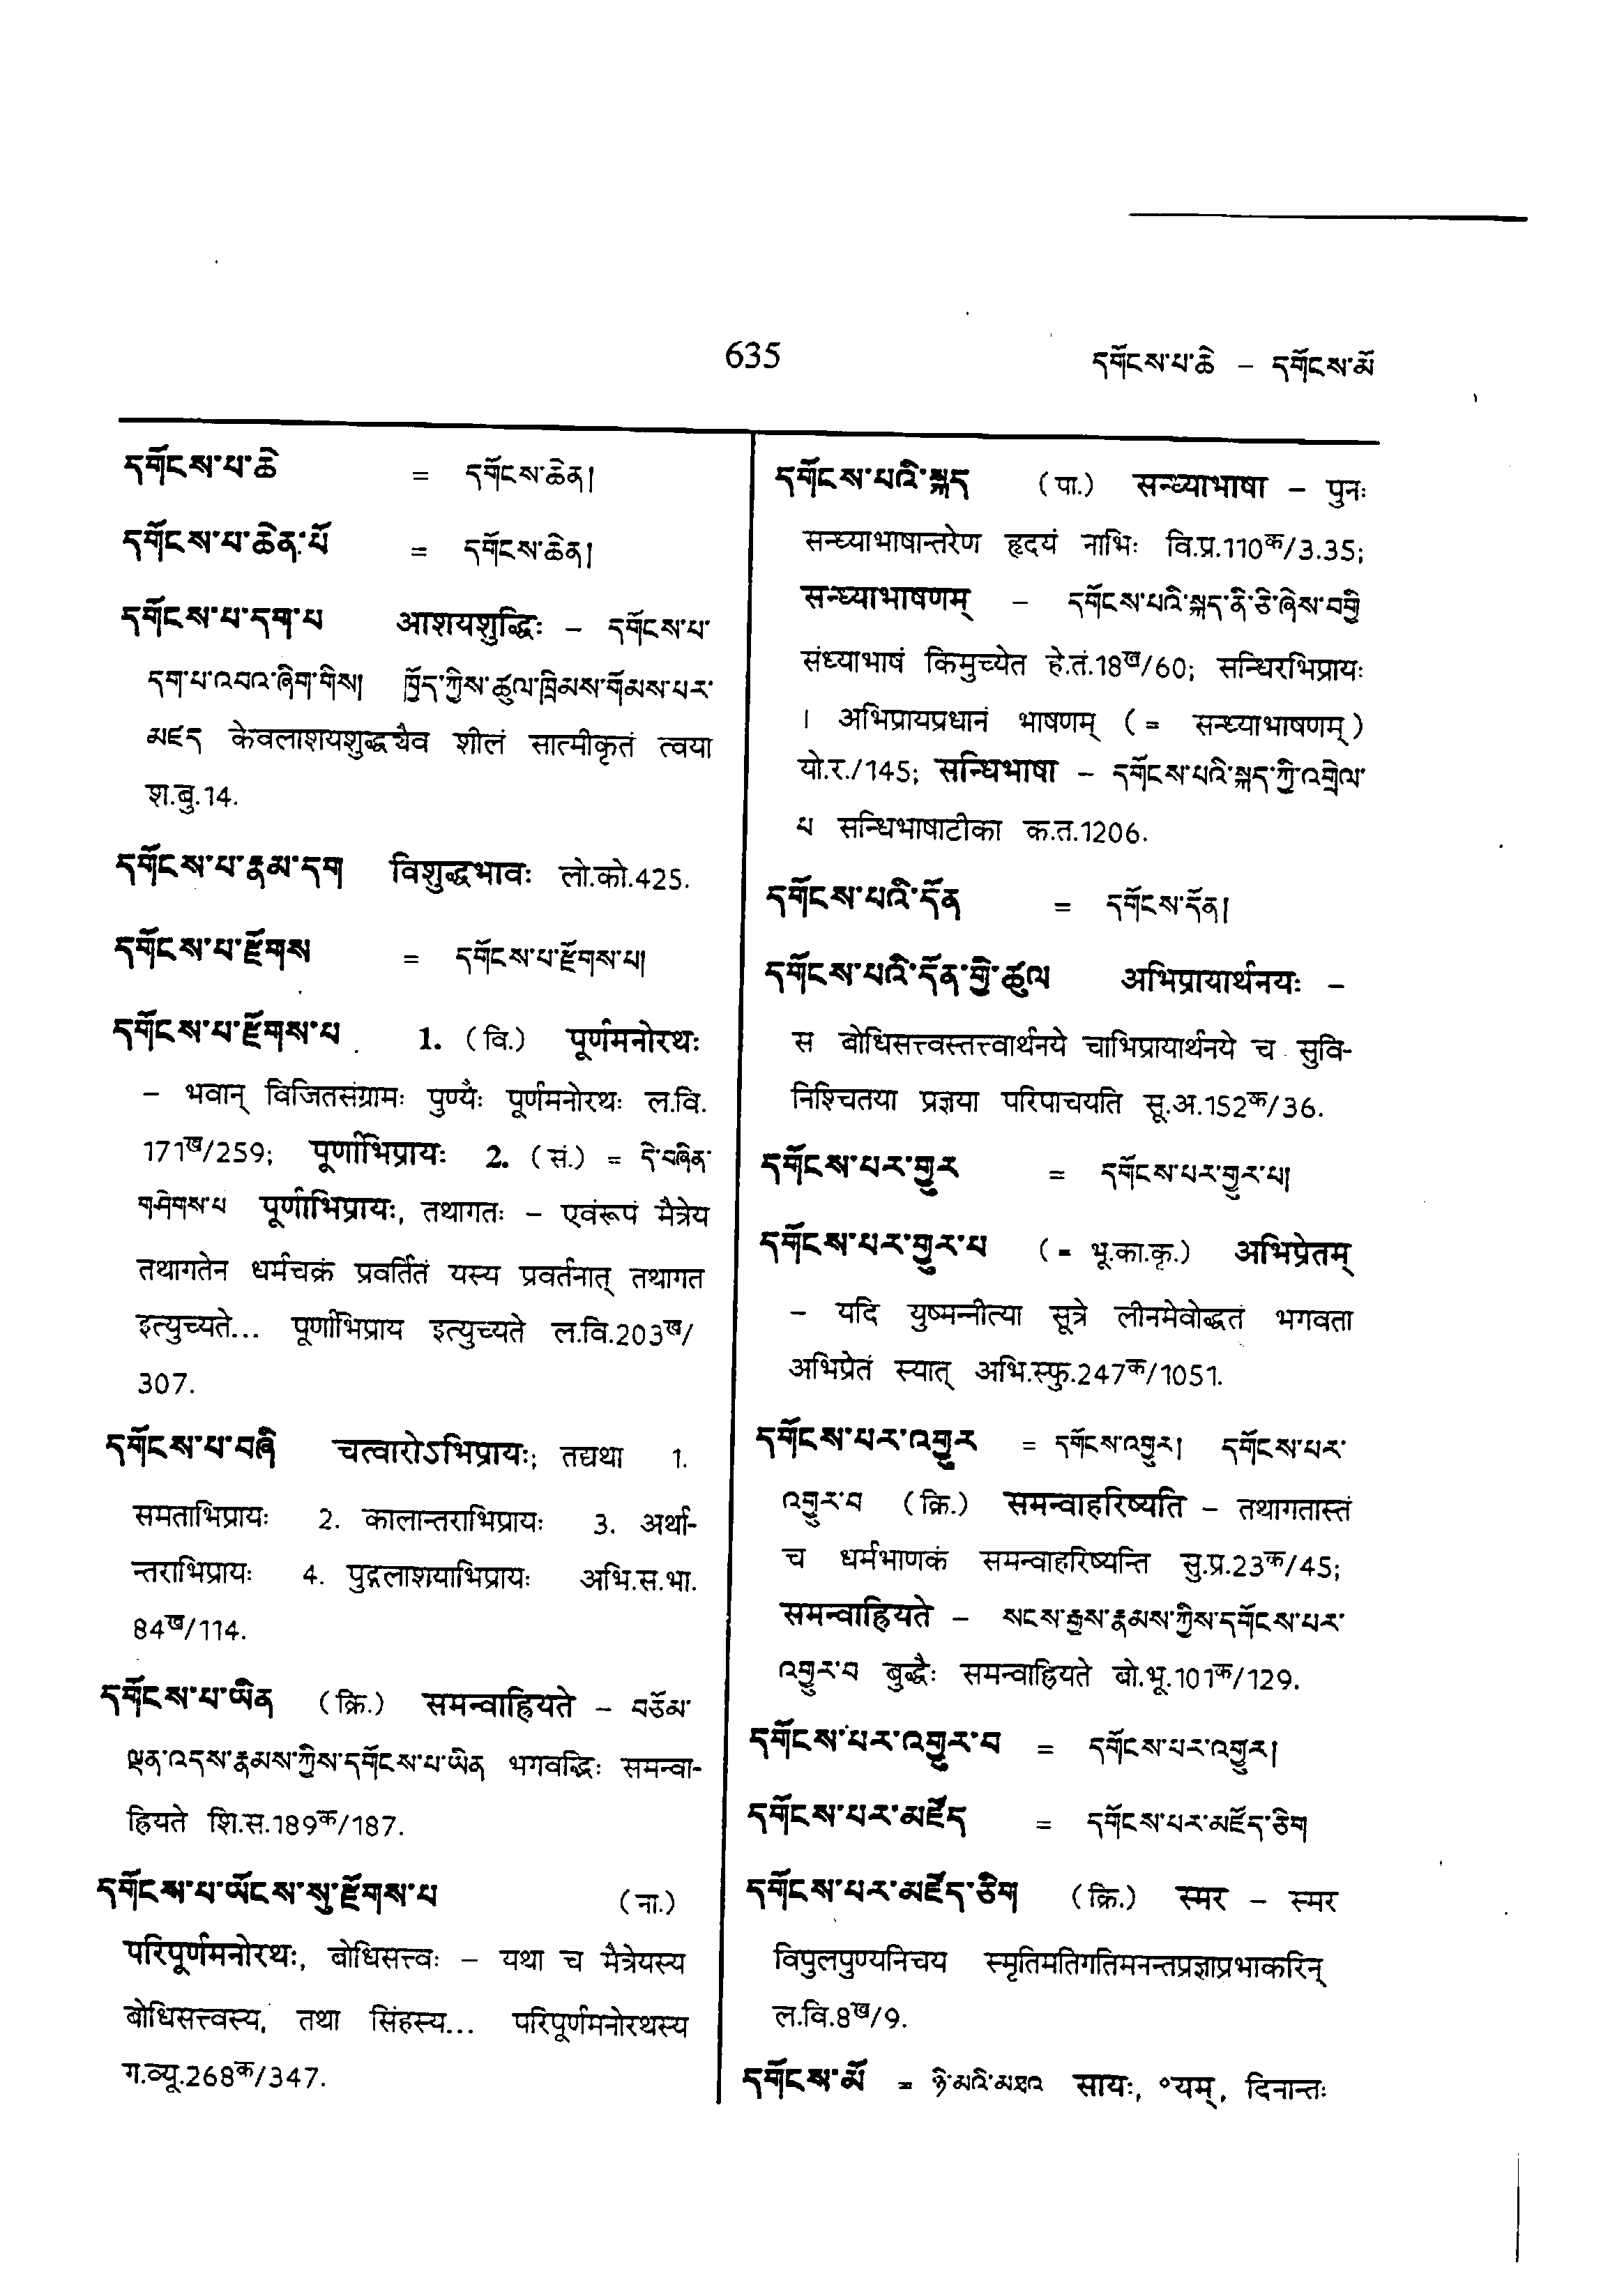 635
དགོངས་པ་ཆེ – དགོངས་མོ
དགོངས་པ་ཆེ = དགོངས་ཆེན།
དགོངས་པ་ཆེན་པོ = དགོངས་ཆེན།
དགོངས་པ་དག་པ आशयशुद्धिः – དགོངས་པ་
དག་པ་འབའ་ཞིག་གིས། ཁྱོད་ཀྱིས་ཚུལ་ཁྲིམས་གོམས་པར་
མཛད केवलाशयशुद्ध्यैव शीलं सात्मीकृतं त्वया
श.बु.14.
དགོངས་པ་རྣམ་དག विशुद्धभावः लो.को.425.
དགོངས་པ་རྫོགས = དགོངས་པ་རྫོགས་པ།
དགོངས་པ་རྫོགས་པ 1. (वि.) पूर्णमनोरथः
– भवान् विजितसंग्रामः पुण्यैः पूर्णमनोरथः ल.वि.
171ख/259; पूर्णाभिप्रायः 2. (सं.) = དེ་བཞིན་
གཤེགས་པ पूर्णाभिप्रायः, तथागतः – एवंरूपं मैत्रेय
तथागतेन धर्मचक्रं प्रवर्तितं यस्य प्रवर्तनात् तथागत
इत्युच्यते... पूर्णाभिप्राय इत्युच्यते ल.वि.203ख/
307.
དགོངས་པ་བཞི चत्वारोऽभिप्रायः; तद्यथा 1.
समताभिप्रायः 2. कालान्तराभिप्रायः 3. अर्था-
न्तराभिप्रायः 4. पुद्गलाशयाभिप्रायः अभि.स.भा.
84ख/114.
དགོངས་པ་ཡིན (क्रि.) समन्वाह्रियते – བཅོམ་
ལྡན་འདས་རྣམས་ཀྱིས་དགོངས་པ་ཡིན भगवद्भिः समन्वा-
ह्रियते शि.स.189क/187.
དགོངས་པ་ཡོངས་སུ་རྫོགས་པ (ना.)
परिपूर्णमनोरथः, बोधिसत्त्वः – यथा च मैत्रेयस्य
बोधिसत्त्वस्य, तथा सिंहस्य... परिपूर्णमनोरथस्य
ग.व्यू.268क/347.
དགོངས་པའི་སྐད (पा.) सन्ध्याभाषा – पुनः
सन्ध्याभाषान्तरेण हृदयं नाभिः वि.प्र.110क/3.35;
सन्ध्याभाषणम् – དགོངས་པའི་སྐད་ནི་ཅི་ཞེས་བགྱི
संध्याभाषं किमुच्येत हे.तं.18ख/60; सन्धिरभिप्रायः
। अभिप्रायप्रधानं भाषणम् (= सन्ध्याभाषणम्)
यो.र./145; सन्धिभाषा – དགོངས་པའི་སྐད་ཀྱི་འགྲེལ་
པ सन्धिभाषाटीका क.त.1206.
དགོངས་པའི་དོན = དགོངས་དོན།
དགོངས་པའི་དོན་གྱི་ཚུལ अभिप्रायार्थनयः –
स बोधिसत्त्वस्तत्त्वार्थनये चाभिप्रायार्थनये च सुवि-
निश्चितया प्रज्ञया परिपाचयति सू.अ.152क/36.
དགོངས་པར་གྱུར = དགོངས་པར་གྱུར་པ།
དགོངས་པར་གྱུར་པ (= भू.का.कृ.) अभिप्रेतम्
– यदि युष्मन्नीत्या सूत्रे लीनमेवोद्धतं भगवता
अभिप्रेतं स्यात् अभि.स्फु.247क/1051.
དགོངས་པར་འགྱུར = དགོངས་འགྱུར། དགོངས་པར་
འགྱུར་བ (क्रि.) समन्वाहरिष्यति – तथागतास्तं
च धर्मभाणकं समन्वाहरिष्यन्ति सु.प्र.23क/45;
समन्वाह्रियते – སངས་རྒྱས་རྣམས་ཀྱིས་དགོངས་པར་
འགྱུར་བ बुद्धैः समन्वाह्रियते बो.भू.101क/129.
དགོངས་པར་འགྱུར་བ = དགོངས་པར་འགྱུར།
དགོངས་པར་མཛོད = དགོངས་པར་མཛོད་ཅིག
དགོངས་པར་མཛོད་ཅིག (क्रि.) स्मर – स्मर
विपुलपुण्यनिचय स्मृतिमतिगतिमनन्तप्रज्ञाप्रभाकरिन्
ल.वि.8ख/9.
དགོངས་མོ = ཉི་མའི་མཐའ सायः, °यम्, दिनान्तः